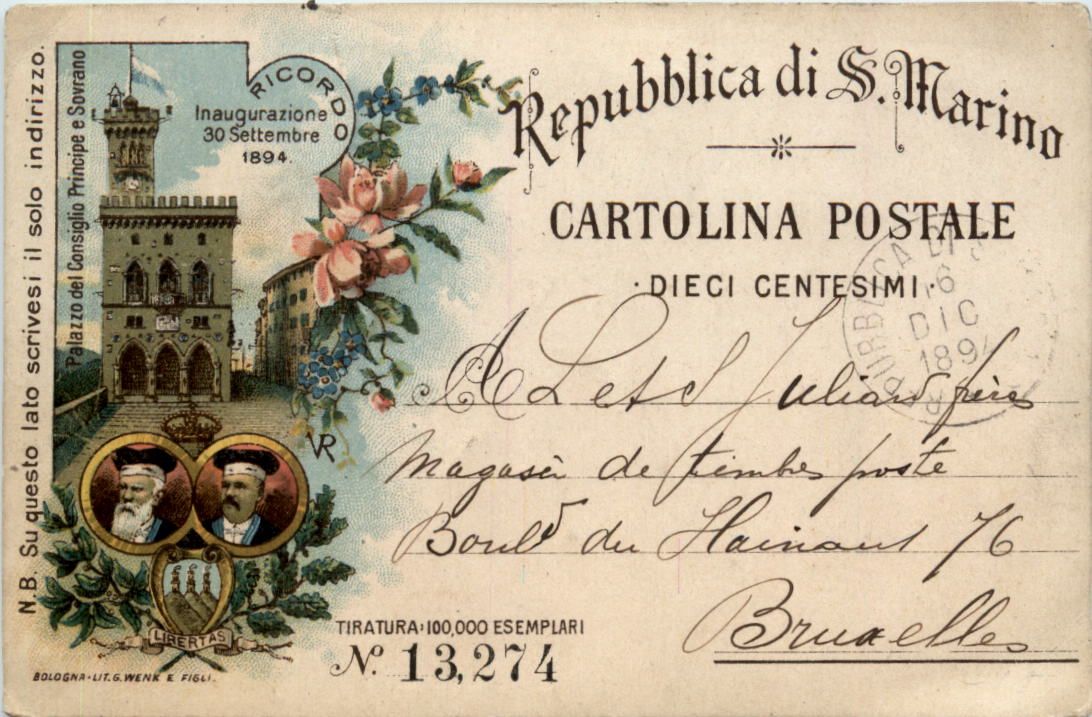 N.B. Su questo lato scrivesi il solo indirizzo.
Palazzo del Consiglio Principe e Sovrano
RICORDO
Inaugurazione
30 Settembre
1894.
Repubblica di S. Marino
CARTOLINA POSTALE
· DIECI CENTESIMI ·
16
DIC
1894
A L et S Julian frères
Magasin de timbres poste
Boulᵈ du Hainaut 76
Bruxelles
VR
LIBERTAS
TIRATURA: 100,000 ESEMPLARI
Nº. 13,274
BOLOGNA - LIT. G. WENK E FIGLI.